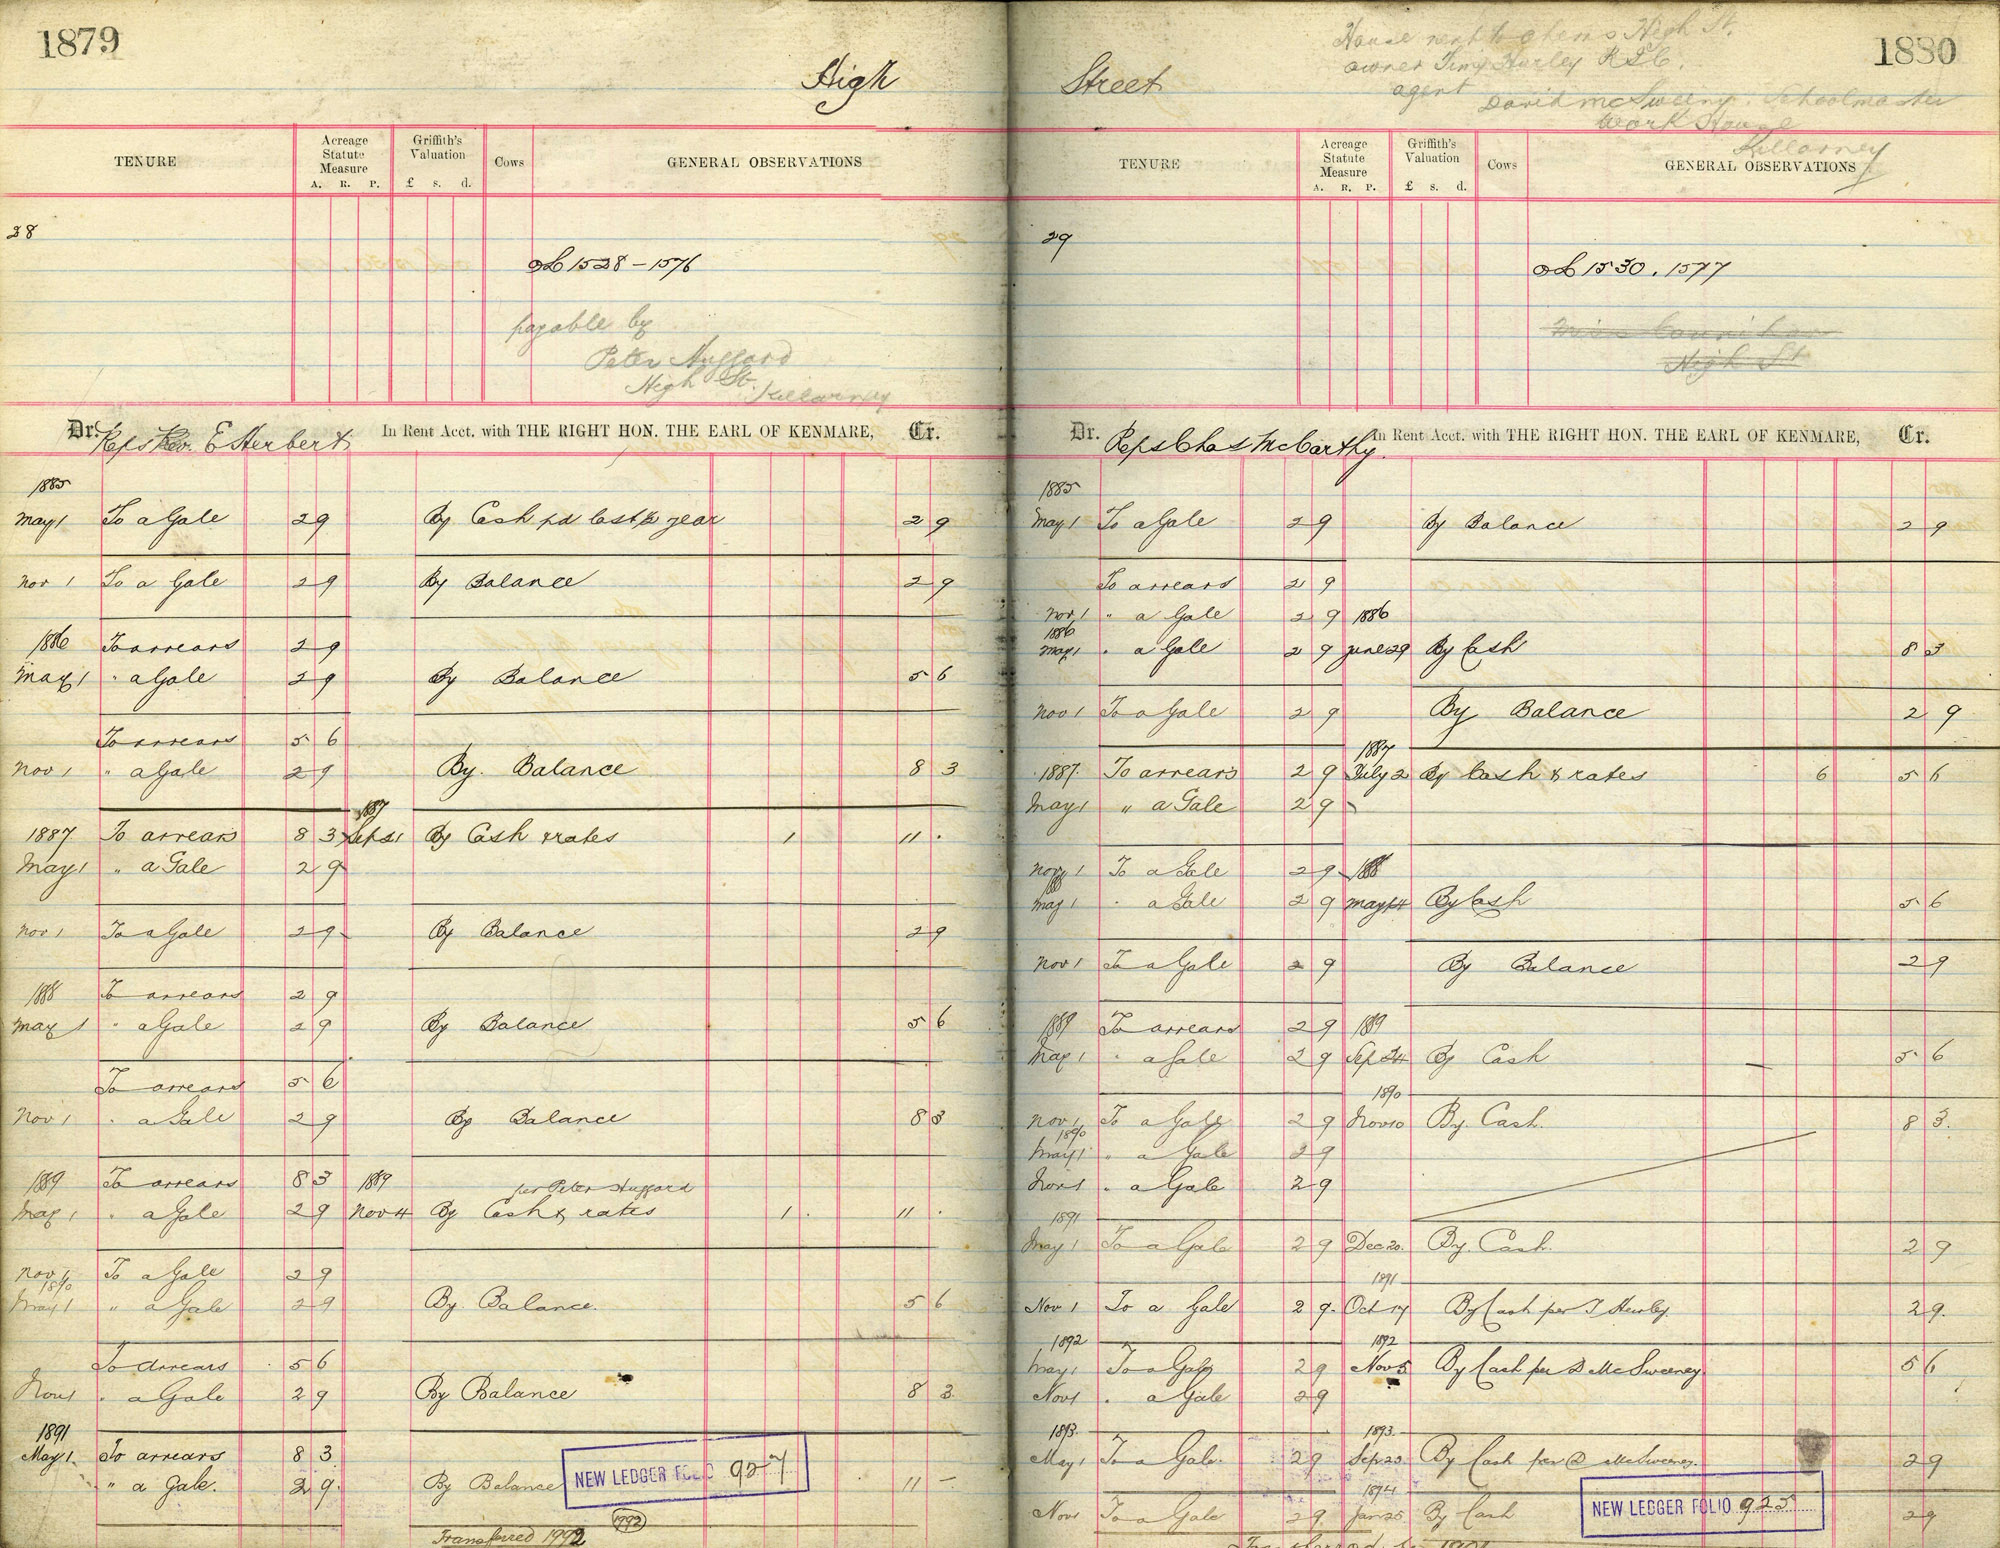 1879
High
TENURE
Acreage Statute Measure
A. R. P.
Griffith's Valuation
£ s. d.
Cows
GENERAL OBSERVATIONS
28
OL 1528 – 1576
payable by
Peter Huggard
High St. Killarney
Dr. Reps Rev. E Herbert In Rent Acct. with THE RIGHT HON. THE EARL OF KENMARE, Cr.
1885
May 1 To a Gale 2 9 By Cash pd last ½ year 2 9
Nov 1 To a Gale 2 9 By Balance 2 9
1886 To arrears 2 9
May 1 " a Gale 2 9 By Balance 5 6
To arrears 5 6
Nov 1 " a Gale 2 9 By. Balance 8 3
1887
1887 To arrears 8 3 Sept 21 By Cash & rates 1 11 .
May 1 " a Gale 2 9
Nov 1 To a Gale 2 9 By Balance 2 9
1888 To arrears 2 9
May 1 " a Gale 2 9 By Balance 5 6
To arrears 5 6
Nov 1 " a Gale 2 9 By Balance 8 3
1889 To arrears 8 3 1889 per Peter Huggard
May 1 " a Gale 2 9 Nov 4 By Cash & rates 1 . 11 .
Nov 1 To a Gale 2 9
1890
May 1 " a Gale 2 9 By. Balance. 5 6
To arrears 5 6
Nov 1 " a Gale 2 9 By Balance 8 3
1891
May 1. To arrears 8 3
" a Gale. 2 9. By Balance 11 –
NEW LEDGER FOLIO 927
1992
Transferred 1992
1880
Street
House next to Ahern's High St.
owner Timy Hurley R.I.C.
agent
David McSweeny. Schoolmaster
Work House
Killarney
TENURE
Acreage Statute Measure
A. R. P.
Griffith's Valuation
£ s. d.
Cows
GENERAL OBSERVATIONS
29
OL 1530. 1577
Miss Counihan
High St
Dr. Reps Chas McCarthy. In Rent Acct. with THE RIGHT HON. THE EARL OF KENMARE, Cr.
1885
May 1 To a Gale 2 9 By Balance 2 9
To arrears 2 9
Nov 1 " a Gale 2 9 1886
1886
May 1 " a Gale 2 9 June 29 By Cash 8 3
Nov 1 To a Gale 2 9 By Balance 2 9
1887
1887. To arrears 2 9 July 2 By Cash & rates 6 5 6
May 1 " a Gale 2 9
Nov 1 To a Gale 2 9 1888
1888
May 1 " a Gale 2 9 May 14 By Cash 5 6
Nov 1 To a Gale 2 9 By Balance 2 9
1889 To arrears 2 9 1889
May 1 " a Gale 2 9 Sep 24 By Cash 5 6
1890
Nov 1 To a Gale 2 9 Nov 10 By. Cash. 8 3.
1890
May 1 " a Gale 2 9
Nov 1 " a Gale 2 9
1891
May 1 To a Gale 2 9 Dec 20. By. Cash. 2 9
1891
Nov 1 To a Gale 2 9. Oct 17 By Cash per T Hurley. 2 9.
1892 1892
May 1 To a Gale 2 9 Nov 5 By Cash per D McSweeney. 5 6
Nov 1 " a Gale 2 9
1893. 1893.
May 1 To a Gale. 2 9 Sep 23 By Cash per D McSweeney. 2 9
1894
Nov 1 To a Gale 2 9. Jan 25 By Cash 2 9
NEW LEDGER FOLIO 925